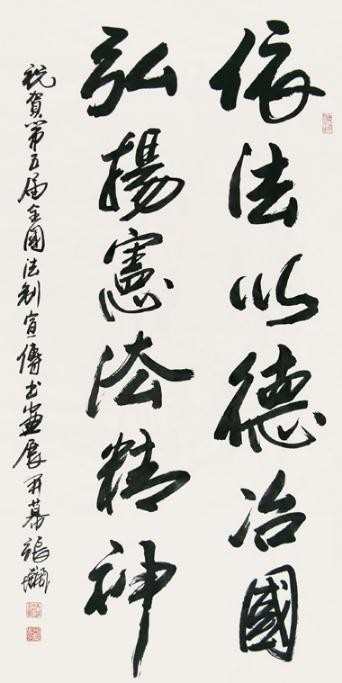 依法以德治國
弘揚憲法精神
祝賀第五届全國法制宣傳书畫展开幕張